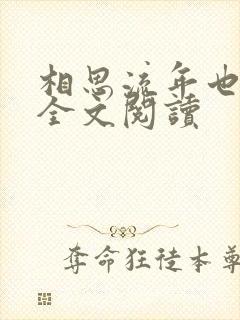 相思流年也
全文閱讀
奪命狂徒本尊